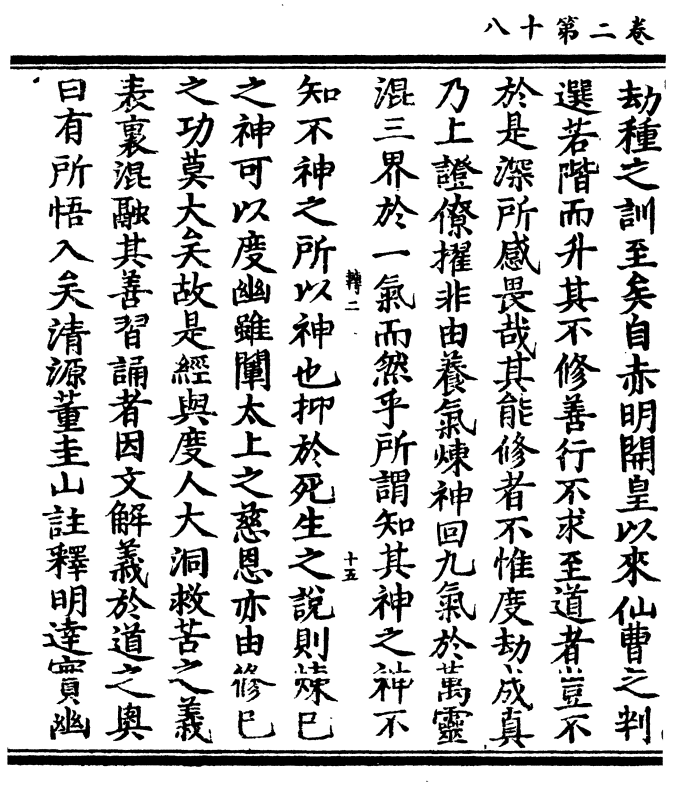 卷二第十八
劫種之訓至矣自赤明開皇以來仙曹之判
選若階而升其不修善行不求至道者豈不
於是深所感畏哉其能修者不惟度劫成真
乃上證僚擢非由養氣煉神回九氣於萬靈
混三界於一氣而然乎所謂知其神之神不
轉二
十五
知不神之所以神也抑於死生之說則煉已
之神可以度幽雖闡太上之慈恩亦由修已
之功莫大矣故是經與度人大洞救苦之義
表裏混融其善習誦者因文解義於道之奧
曰有所悟入矣清源董圭山註釋明達實幽